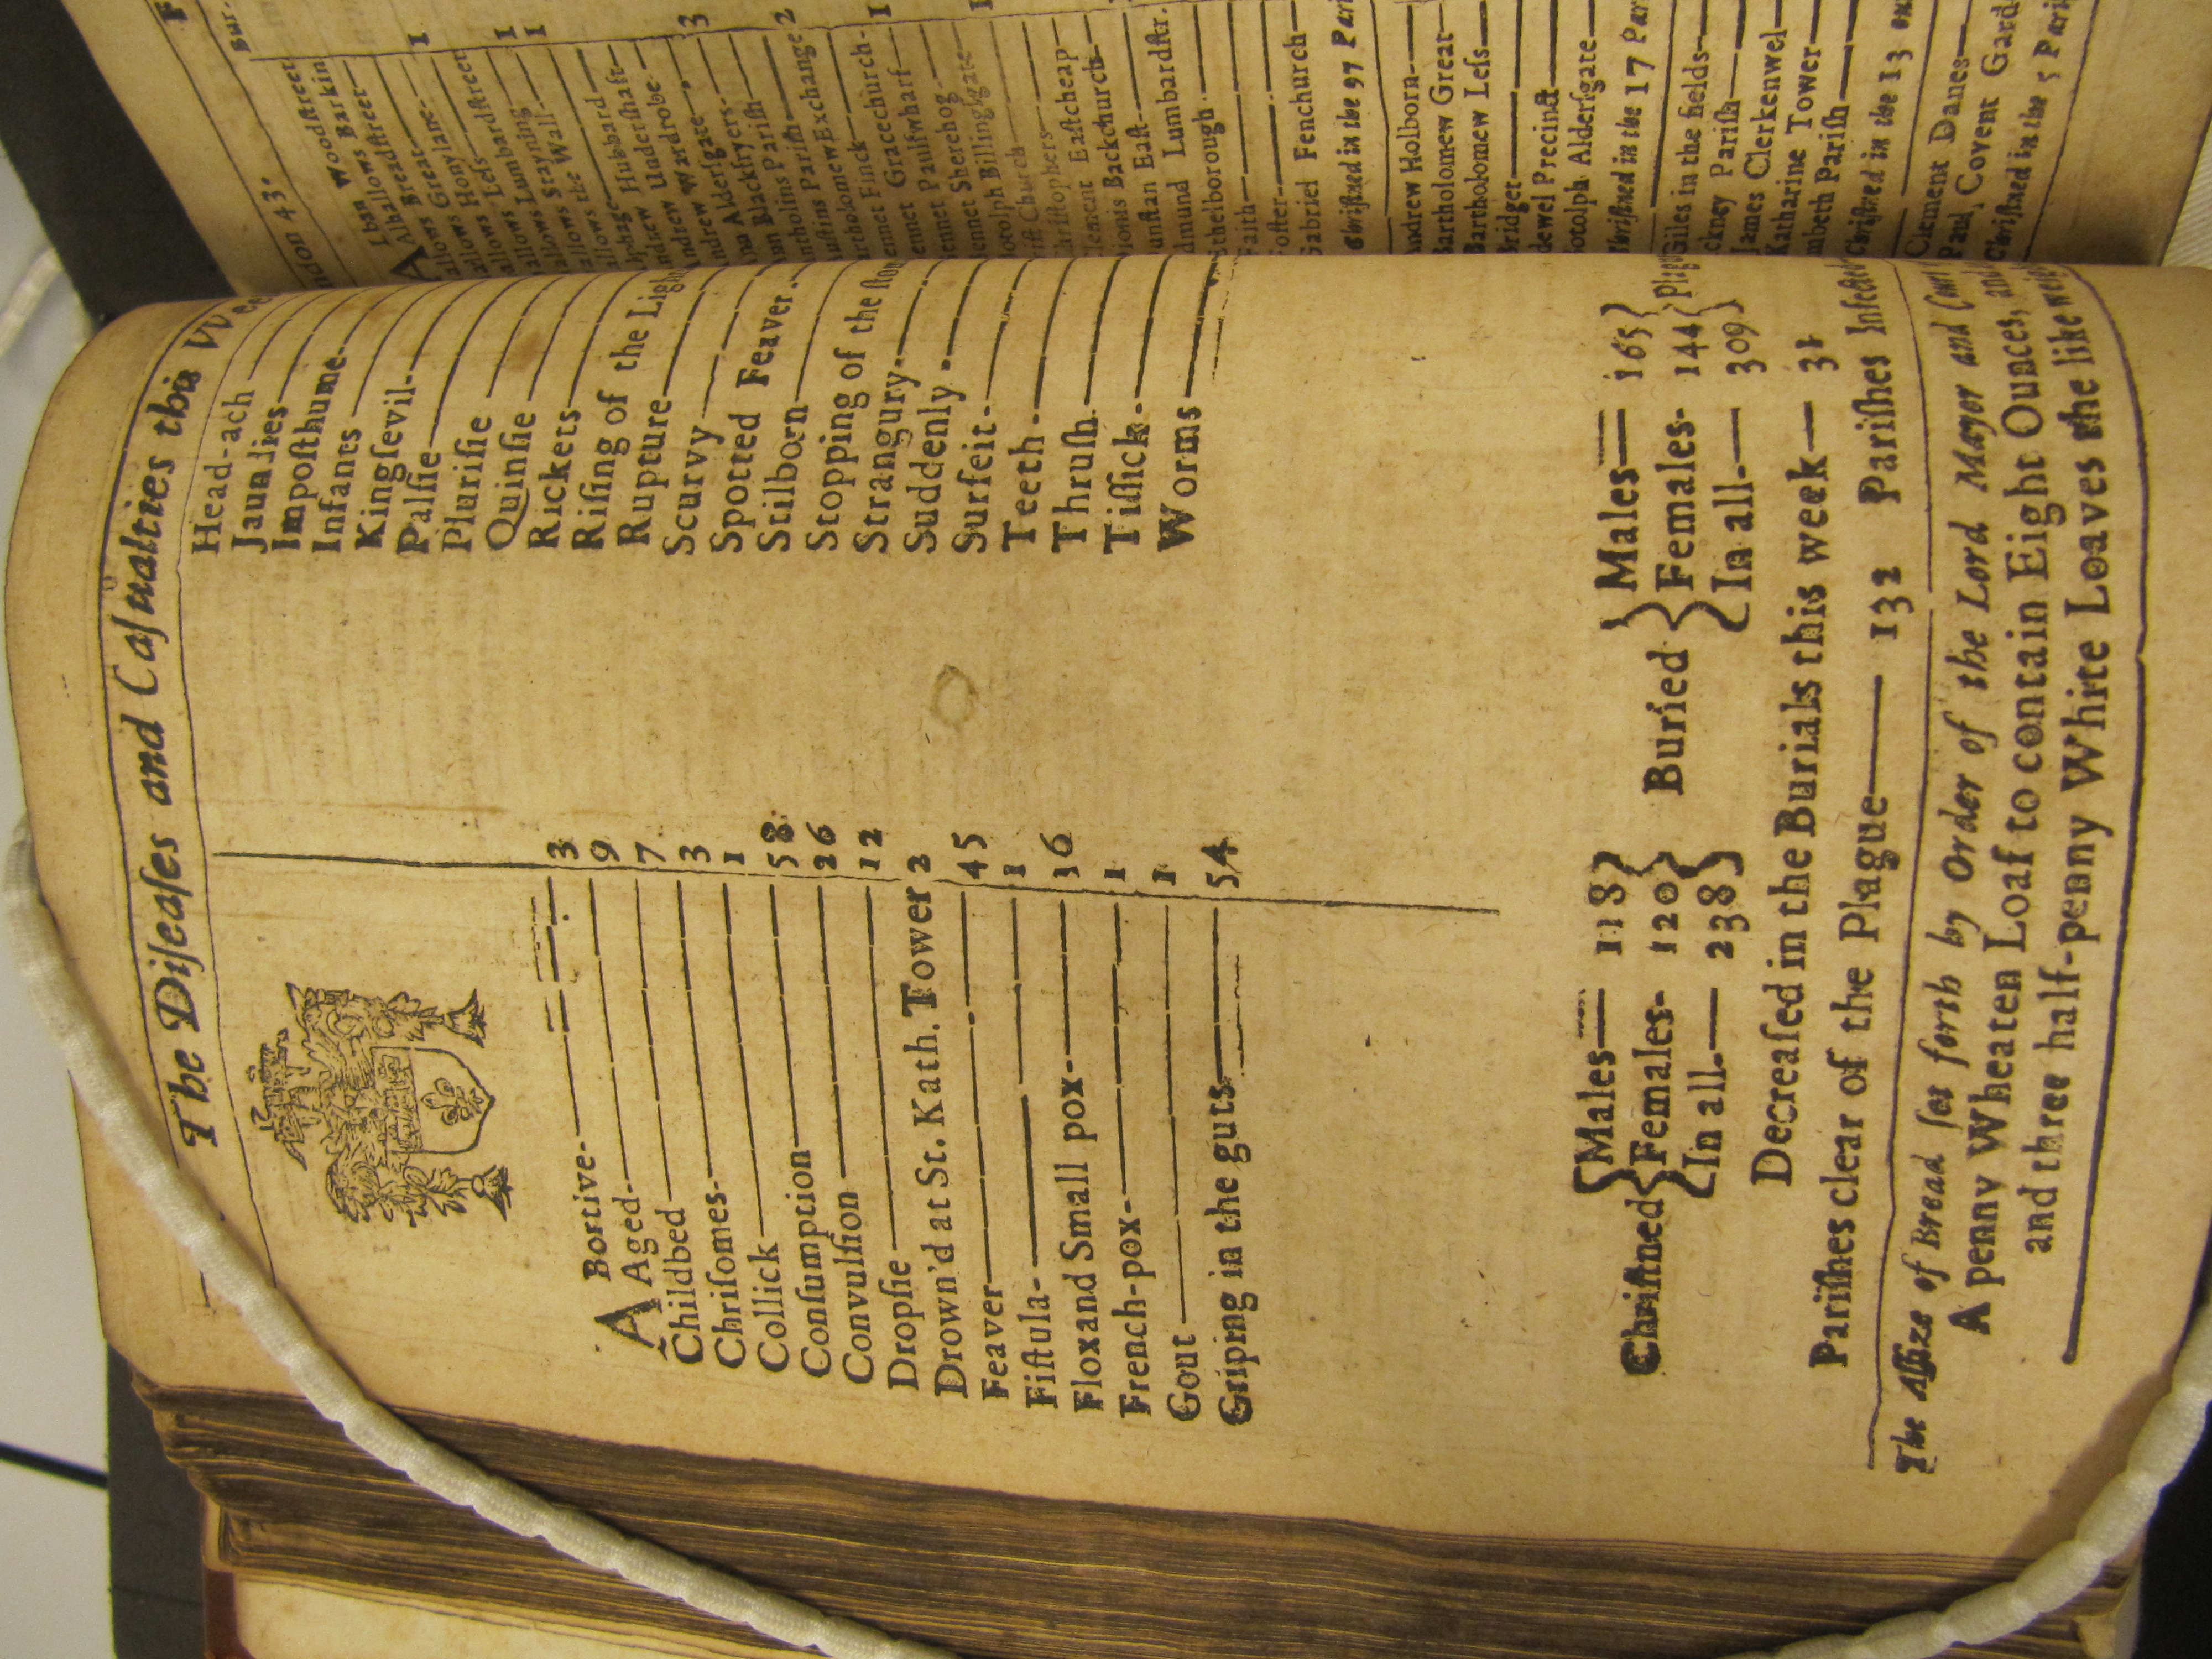 The Diſeaſes and Caſualties this
ABortive 3
Aged 9
Childbed 7
Chriſomes 3
Collick 1
Conſumption 58
Convulſion 26
Dropſie 12
Drown'd at St. Kath. Tower 2
Feaver 45
Fiſtula 1
Flox and Small pox 16
French-pox 1
Gout 1
Griping in the guts 54
Head-ach
Jaundies
Impoſthume
Infants
Kingſevil
Palſie
Pluriſie
Quinſie
Rickets
Riſing of the Lig
Rupture
Scurvy
Spotted Feaver
Stilborn
Stopping of the ſto
Strangury
Suddenly
Surfeit
Teeth
Thruſh
Tiſſick
Worms
Chriſtned { Males 118
Females 120
In all 238 }
Buried { Males 165
Females 144
In all 309 } Plag
Decreaſed in the Burials this week 31
Pariſhes clear of the Plague 132 Pariſhes Infected
The Aſſize of Bread ſet forth by Order of the Lord Mayor and Court
A penny Wheaten Loaf to contain Eight Ounces, and
and three half-penny White Loaves the like weig
ndon 43.
Bur.
lban Woodſtreet
Alhallows Barkin
Alhallows Breadſtreet 1
allows Great
allows Honylane
allows Leſs 1
allows Lombardſtreet 1
allows Staynin
allows the Wall
lphage
ndrew Hubbard
ndrew Underſhaft
ndrew Wardrobe 3
nn Alderſgate
nn Blackfryers 2
ntholins Pariſh
uſtins Pariſh
artholomew Exchange 1
ennet Finck
ennet Gracechurch
ennet Paulſwharf
ennet Sherehog
otolph Billingſgate
iſt Church
riſtophers
lement Eaſtcheap
ionis Backchurch
unſtan Eaſt
dmund Lumbardſtr.
thelborough
Faith
Foſter
Gabriel Fenchurch
Chriſtned in the 97 Pari
ndrew Holborn
Bartholomew Great
Bartholomew Leſs
Bridget
dewel Precinct
otolph Alderſgate
Chriſtned in the 17 Par
Giles in the fields
ckney Pariſh
James Clerkenwel
Katharine Tower
mbeth Pariſh
Chriſtned in the 13 out
Clement Danes
Paul Covent Gard
Chriſtned in the 5 Pari